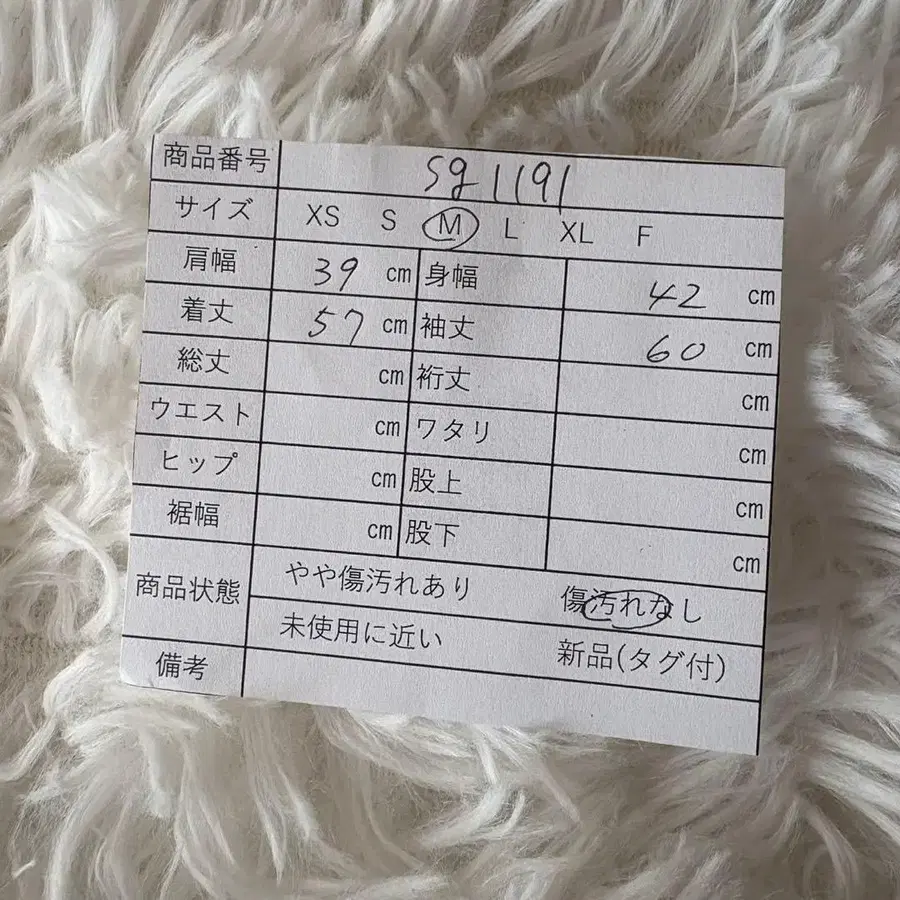 商品番号 sg1191
サイズ XS S M L XL F
肩幅 39 cm 身幅 42 cm
着丈 57 cm 袖丈 60 cm
総丈 cm 裄丈 cm
ウエスト cm ワタリ cm
ヒップ cm 股上 cm
裾幅 cm 股下 cm
商品状態 やや傷汚れあり 傷汚れなし
未使用に近い 新品(タグ付)
備考